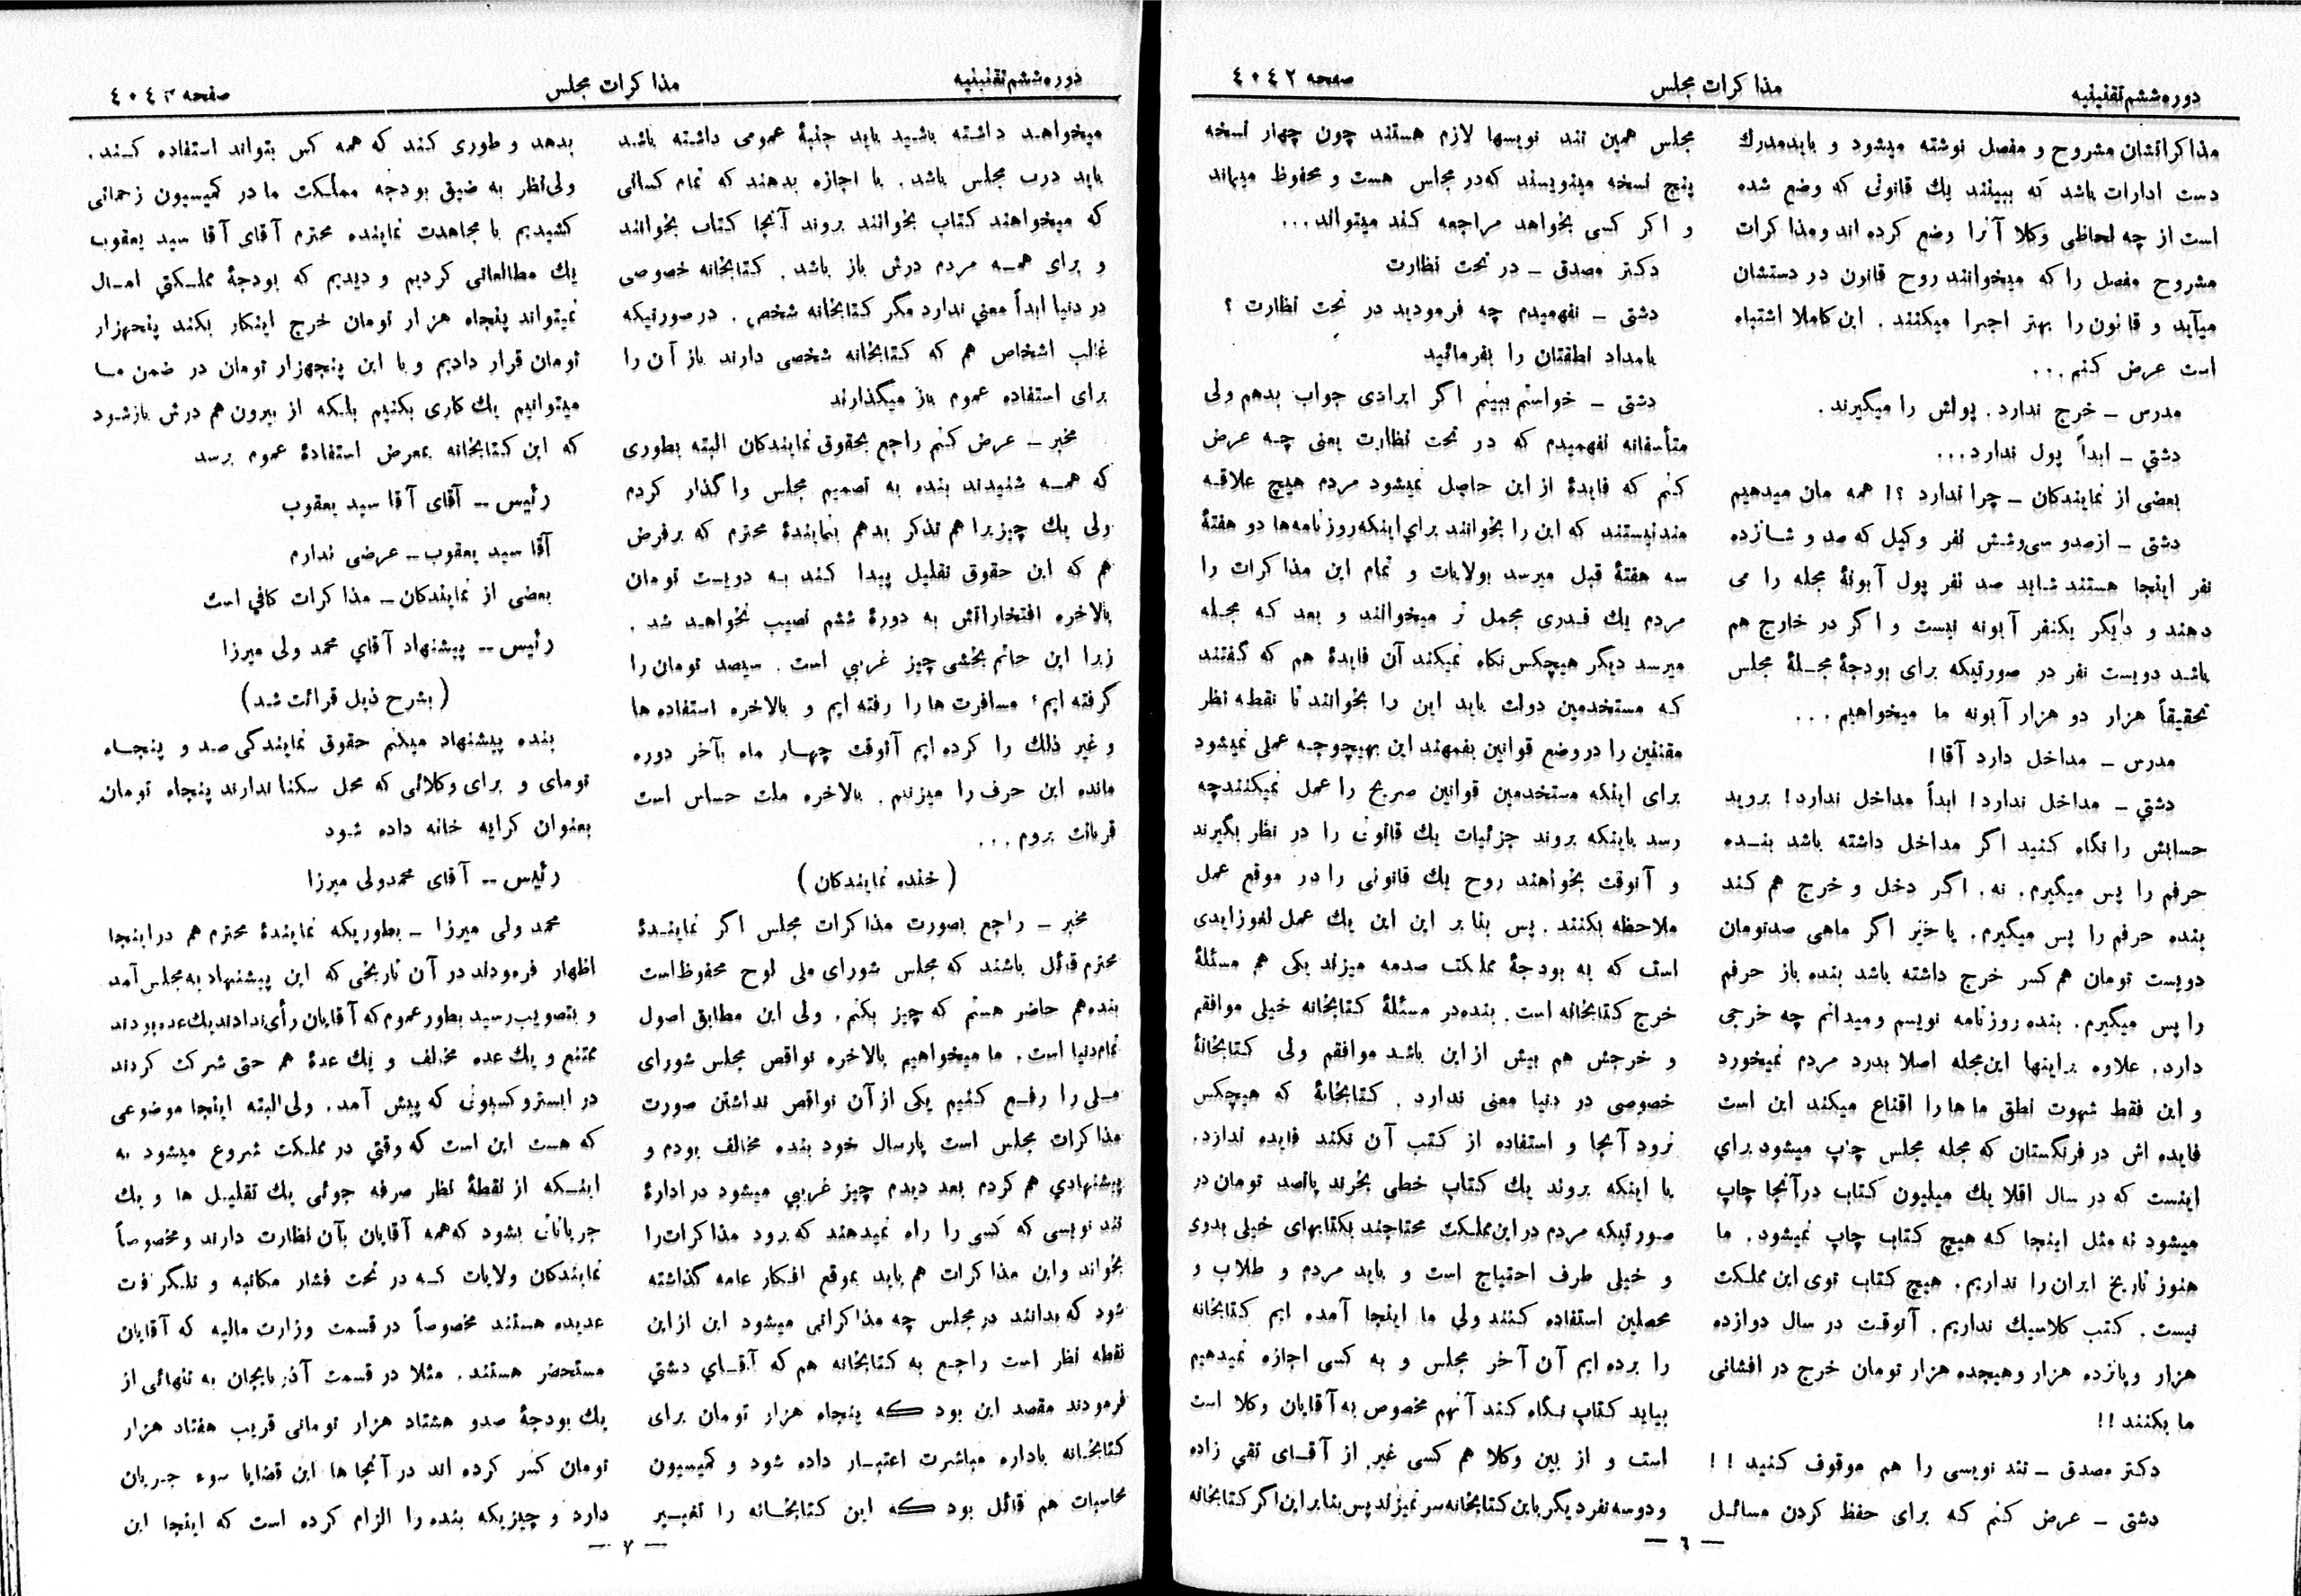 دوره ششم تقنینیه
مذاکرات مجلس
صفحه ٤٠٤٢
مذاکراتشان مشروح و مفصل نوشته میشود و باید مدرك
دست ادارات باشد که ببینند یك قانونی که وضع شده
است از چه لحاظی وکلا آنرا وضع کرده اند و مذاکرات
مشروح مفصل را که میخوانند روح قانون در دستشان
میآید و قانون را بهتر اجرا میکنند . این کاملا اشتباه
است عرض کنم ...
مدرس ــ خرج ندارد . پولش را میگیرند .
دشتي ــ ابداً پول ندارد ...
بعضی از نمایندکان ــ چرا ندارد ؟! همه مان میدهیم
دشتی ــ از صدو سی و شش نفر وکیل که صد و شانزده
نفر اینجا هستند شاید صد نفر پول آبونهٔ مجله را می
دهند و دیگر یکنفر آبونه نیست و اگر در خارج هم
باشد دویست نفر در صورتیکه برای بودجهٔ مجلهٔ مجلس
تحقیقاً هزار دو هزار آبونه ما میخواهیم ...
مدرس ــ مداخل دارد آقا !
دشتي ــ مداخل ندارد ! ابداً مداخل ندارد ! بروید
حسابش را نگاه کنید اگر مداخل داشته باشد بنده
حرفم را پس میگیرم . نه . اگر دخل و خرج هم کند
بنده حرفم را پس میگیرم . یا خیر اگر ماهی صد تومان
دویست تومان هم کسر خرج داشته باشد بنده باز حرفم
را پس میگیرم . بنده روزنامه نویسم و میدانم چه خرجی
دارد . علاوه بر اینها این مجله اصلا بدرد مردم نمیخورد
و این فقط شهوت نطق ماها را اقناع میکند این است
فایده اش در فرنگستان که مجله مجلس چاپ میشود برای
اینست که در سال اقلا یك میلیون کتاب در آنجا چاپ
میشود نه مثل اینجا که هیچ کتاب چاپ نمیشود . ما
هنوز تاریخ ایران را نداریم . هیچ کتاب توی این مملکت
نیست . کتب کلاسیك نداریم . آنوقت در سال دوازده
هزار و پانزده هزار و هیجده هزار تومان خرج در افشانی
ما بکنند !!
دکتر مصدق ــ تند نویسی را هم موقوف کنید ! !
دشتی ــ عرض کنم که برای حفظ کردن مسائل
مجلس همین تند نویسها لازم هستند چون چهار نسخه
پنج نسخه مینویسند که در مجلس هست و محفوظ میماند
و اگر کسی بخواهد مراجعه کند میتواند ...
دکتر مصدق ــ در تحت نظارت
دشتی ــ نفهمیدم چه فرمودید در تحت نظارت ؟
بامداد نطقتان را بفرمائید
دشتی ــ خواستم ببینم اگر ایرادی جواب بدهم ولی
متأسفانه نفهمیدم که در تحت نظارت یعنی چه عرض
کنم که فایدهٔ از این حاصل نمیشود مردم هیچ علاقه
مند نیستند که این را بخوانند برای اینکه روزنامه‌ها دو هفتهٔ
سه هفتهٔ قبل میرسد بولایات و تمام این مذاکرات را
مردم یك قدری مجمل تر میخوانند و بعد که مجله
میرسد دیگر هیچکس نگاه نمیکند آن فایدهٔ هم که گفتند
که مستخدمین دولت باید این را بخوانند تا نقطه نظر
مقننین را در وضع قوانین بفهمند این بهیچوجه عملی نمیشود
برای اینکه مستخدمین قوانین صریح را عمل نمیکنند چه
رسد باینکه بروند جزئیات یك قانون را در نظر بگیرند
و آنوقت بخواهند روح یك قانونی را در موقع عمل
ملاحظه بکنند . پس بنا بر این این یك عمل لغو زایدی
است که به بودجهٔ مملکت صدمه میزند یکی هم مسئلهٔ
خرج کتابخانه است . بنده در مسئلهٔ کتابخانه خیلی موافقم
و خرجش هم بیش از این باشد موافقم ولی کتابخانهٔ
خصوصی در دنیا معنی ندارد . کتابخانهٔ که هیچکس
نرود آنجا و استفاده از کتب آن نکند فایده ندارد .
یا اینکه بروند یك کتاب خطی بخرند پانصد تومان در
صورتیکه مردم در این مملکت محتاجند بکتابهای خیلی بدوی
و خیلی طرف احتیاج است و باید مردم و طلاب و
محصلین استفاده کنند ولی ما اینجا آمده ایم کتابخانه
را برده ایم آن آخر مجلس و به کسی اجازه نمیدهیم
بیاید کتاب نگاه کند آنهم مخصوص به آقایان وکلا است
است و از بین وکلا هم کسی غیر از آقای تقی زاده
و دو سه نفر دیگر باین کتابخانه سر نمیزند پس بنابراین اگر کتابخانه
ــ ٦ ــ
دوره ششم تقنینیه
مذاکرات مجلس
صفحه ٤٠٤٣
میخواهد داشته باشید باید جنبهٔ عمومی داشته باشد
باید درب مجلس باشد . یا اجازه بدهند که تمام کسانی
که میخواهند کتاب بخوانند بروند آنجا کتاب بخوانند
و برای همه مردم درش باز باشد . کتابخانه خصوصی
در دنیا ابداً معني ندارد مگر کتابخانه شخصی . در صورتیکه
غالب اشخاص هم که کتابخانه شخصی دارند باز آن را
برای استفاده عموم باز میگذارند
مخبر ــ عرض کنم راجع بحقوق نمایندکان البته بطوری
که همه شنیدند بنده به تصمیم مجلس واگذار کردم
ولی یك چیزیرا هم تذکر بدهم بنمایندهٔ محترم که برفرض
هم که این حقوق تقلیل پیدا کند به دویست تومان
بالاخره افتخاراتش به دورهٔ ششم نصیب نخواهد شد .
زیرا این حاتم بخشی چیز غریبی است . سیصد تومان را
گرفته ایم ٬ مسافرت ها را رفته ایم و بالاخره استفاده ها
و غیر ذلك را کرده ایم آنوقت چهار ماه بآخر دوره
مانده این حرف را میزنیم . بالاخره ملت حساس است
قربانت بروم ...
( خنده نمایندکان )
مخبر ــ راجع بصورت مذاکرات مجلس اگر نمایندهٔ
محترم قائل باشند که مجلس شورای ملی لوح محفوظ است
بنده هم حاضر هستم که چیز بکنم . ولی این مطابق اصول
تمام دنیا است . ما میخواهیم بالاخره نواقص مجلس شورای
ملی را رفع کنیم یکی از آن نواقص نداشتن صورت
مذاکرات مجلس است پارسال خود بنده مخالف بودم و
پیشنهادي هم کردم بعد دیدم چیز غریبي میشود در ادارهٔ
تند نویسی که کسی را راه نمیدهند که برود مذاکرات را
بخواند و این مذاکرات هم باید بموقع افکار عامه گذاشته
شود که بدانند در مجلس چه مذاکراتی میشود این از این
نقطه نظر است راجع به کتابخانه هم که آقای دشتي
فرمودند مقصد این بود که پنجاه هزار تومان برای
کتابخانه باداره مباشرت اعتبار داده شود و کمیسیون
محاسبات هم قائل بود که این کتابخانه را تغییر
بدهد و طوری کند که همه کس بتواند استفاده کند .
ولی نظر به ضیق بودجه مملکت ما در کمیسیون زحماتی
کشیدیم با مجاهدت نماینده محترم آقای آقا سید یعقوب
یك مطالعاتی کردیم و دیدیم که بودجهٔ مملکتي امسال
نمیتواند پنجاه هزار تومان خرج اینکار بکند پنجهزار
تومان قرار دادیم و با این پنجهزار تومان در ضمن ما
میتوانیم یك کاری بکنیم بلکه از بیرون هم درش باز شود
که این کتابخانه بمعرض استفادهٔ عموم برسد
رئیس ــ آقای آقا سید یعقوب
آقا سید یعقوب ــ عرضی ندارم
بعضی از نمایندکان ــ مذاکرات کافي است
رئیس ــ پیشنهاد آقاي محمد ولی میرزا
( بشرح ذیل قرائت شد )
بنده پیشنهاد میکنم حقوق نمایندگی صد و پنجاه
تومای و برای وکلائی که محل سکنا ندارند پنجاه تومان
بعنوان کرایه خانه داده شود
رئیس ــ آقای محمدولی میرزا
محمد ولی میرزا ــ بطوریکه نمایندهٔ محترم هم در اینجا
اظهار فرمودند در آن تاریخی که این پیشنهاد به مجلس آمد
و بتصویب رسید بطور عموم که آقایان رأی ندادند یك عده بودند
ممتنع و یك عده مخالف و یك عدهٔ هم حتی شرکت کردند
در ابستروکسیونی که پیش آمد . ولی البته اینجا موضوعی
که هست این است که وقتي در مملکت شروع میشود به
اینکه از نقطهٔ نظر صرفه جوئی یك تقلیل ها و یك
جریاناتی بشود که همه آقایان بآن نظارت دارند و مخصوصاً
نمایندکان ولایات که در تحت فشار مکاتبه و تلگرافات
عدیده هستند مخصوصاً در قسمت وزارت مالیه که آقایان
مستحضر هستند . مثلا در قسمت آذربایجان به تنهائی از
یك بودجهٔ صدو هشتاد هزار تومانی قریب هفتاد هزار
تومان کسر کرده اند در آنجا ها این قضایا سوء جریان
دارد و چیزیکه بنده را الزام کرده است که اینجا این
ــ ٧ ــ